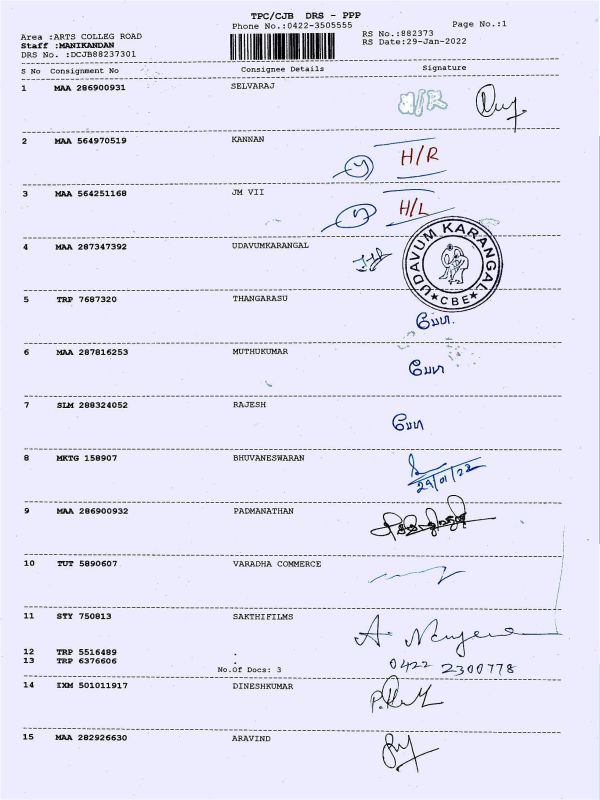 TPC/CJB DRS - PPP
Phone No.:0422-3505555
Page No.:1
Area :ARTS COLLEG ROAD
RS No.:882373
Staff :MANIKANDAN
RS Date:29-Jan-2022
DRS No. :DCJB88237301
S No Consignment No Consignee Details Signature
1 MAA 286900931 SELVARAJ H/R
2 MAA 564970519 KANNAN H/R
3 MAA 564251168 JM VII H/L
4 MAA 287347392 UDAVUMKARANGAL
UDAVUM KARANGAL
★ CBE ★
5 TRP 7687320 THANGARASU
6 MAA 287816253 MUTHUKUMAR
7 SLM 288324052 RAJESH
8 MKTG 158907 BHUVANESWARAN
29/01/22
9 MAA 286900932 PADMANATHAN
10 TUT 5890607 VARADHA COMMERCE
11 STY 750813 SAKTHIFILMS
12 TRP 5516489 .
13 TRP 6376606 .
0422 2300778
No.Of Docs: 3
14 IXM 501011917 DINESHKUMAR
15 MAA 282926630 ARAVIND